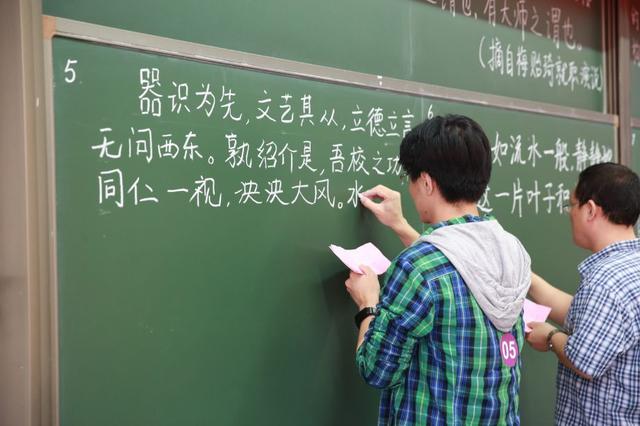 谓也，有大师之谓也。
(摘自梅贻琦就职演说)
5
器识为先，文艺其从，立德立言
无问西东。孰绍介是，吾校之功
同仁一视，泱泱大风。水
6
如流水一般，静静
这一片叶子和
05